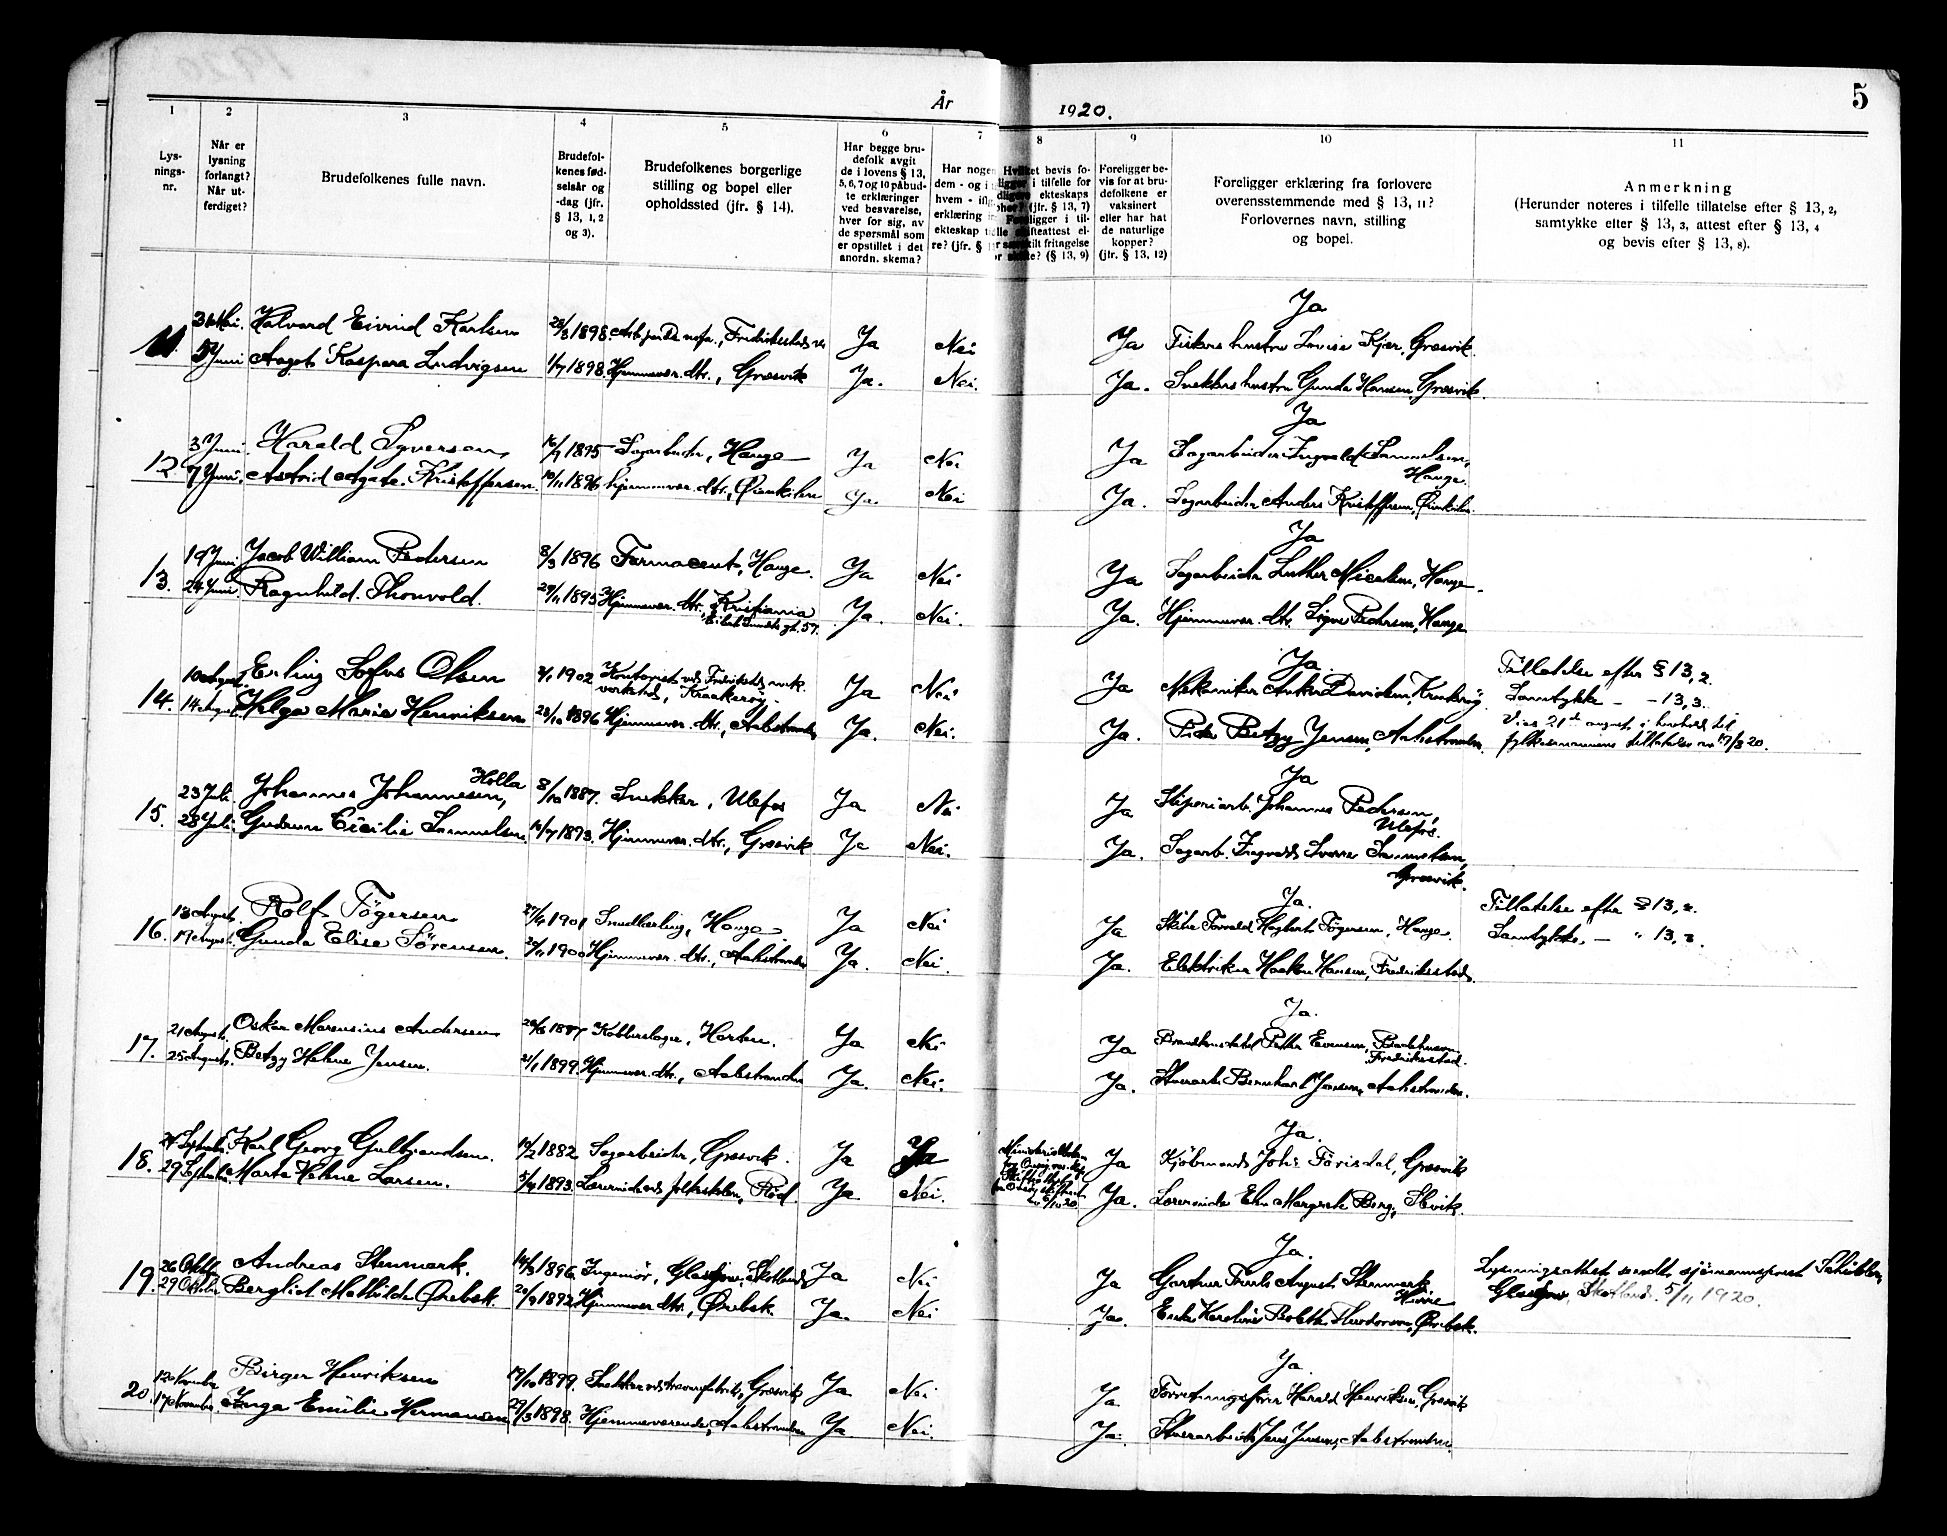 År 1920.
5
1 2 3 4 5 6 7 8 9 10 11
Lys-
nings-
nr.
Når er
lysning
forlangt?
Når ut-
ferdiget?
Brudefolkenes fulle navn.
Brudefol-
kenes fød-
selsår og
-dag (jfr.
§ 13, 1, 2
og 3).
Brudefolkenes borgerlige
stilling og bopel eller
opholdssted (jfr. § 14).
Har begge bru-
defolk avgit
de i lovens § 13,
5, 6, 7 og 10 påbud-
te erklæringer
ved besvarelse,
hver for sig, av
de spørsmål som
er opstillet i det
anordn. skema?
Har nogen
dem - og i
hvem - ifl
erklæring
ekteskap
re? (jfr. §
Hvilket bevis fo-
ligger i tilfelle for
ekteskaps
(jfr. § 13, 7)
Foreligger i til-
felle skifteattest el-
fritagelse
(§ 13, 9)
Foreligger be-
vis for at bru-
defolkene er
vaksinert
eller har hat
de naturlige
kopper?
(jfr. § 13, 12)
Foreligger erklæring fra forlovere
overensstemmende med § 13, 11?
Forlovernes navn, stilling
og bopel.
Anmerkning
(Herunder noteres i tilfelle tillatelse efter § 13, 2,
samtykke efter § 13, 3, attest efter § 13, 4
og bevis efter § 13, 8).
Ja
11. 31 Mai. Halvard Eivind Karlsen 28/3 1898. Ja Nei Ja Fiskers hustru Lovise Kjær, Græsvik.
5 Juni Aagot Kaspara Ludvigsen 1/7 1898. Hjemmevær. dtr., Græsvik Ja. Nei. Ja. Snekkers hustru Gunda Hansen, Græsvik.
Ja
12. 3 Juni Harald Syversen, 16/7 1895 Sagarbeider, Hauge Ja Nei Ja Sagarbeider Ingvald Samuelsen,
Hauge.
7 Juni. Astrid Agate Kristoffersen. 10/11 1896 hjemmevær. dtr., Øienkilen Ja. Nei Ja. Sagarbeider Anders Kristoffersen, Øienkilen.
Ja
13. 19 Juni Jacob William Pedersen 8/3 1896 Farmaceut, Hauge. Ja Nei Ja Sagarbeider Luther Nicolaisen, Hauge.
24 Juni Ragnhild Thorvold. 29/11 1895 Hjemmevær. dtr., Kristiania
Eilert Sundts gt. 57. Ja. Nei. Ja. Hjemmevær. dtr. Signe Pedersen, Hauge
Ja.
14. 10 August Erling Sofus Olsen 2/1 1902 Kontorist ved Fredrikstads mek.
verksted, Kraakerøy. Ja Nei Ja Mekaniker Anker Davidsen, Kraakerøy.
14 August Helga Marie Henriksen 28/10 1896 Hjemmevær. dtr., Aalestranden Ja. Nei. Ja. Pike Betzy Jensen, Aalestranden.
Tillatelse efter § 13, 2.
Samtykke - - 13, 3.
Viet 21de august, i henhold til
fylkesmannens tillatelse av 17/8 20.
Ja
15. 23 Juli Johannes Johannesen, Holla 8/10 1887. Snekker, Ulefos Ja Nei Ja Johannes Pedersen,
Ulefos.
28 Juli Gudrun Cecilie Samuelsen 14/7 1893. Hjemmevær. dtr., Græsvik Ja Nei. Ja. Sagarb. Ingvald Sverre Samuelsen,
Græsvik.
Ja.
16. 13 August. Rolf Tøgersen 27/6 1901 Smedlærling, Hauge. Ja Nei Ja Torvald Hagbart Tøgersen, Hauge.
17 August. Gunda Elise Sørensen. 29/11 1900 Hjemmevær. dtr., Aalestranden Ja. Nei. Ja. Elektriker Haakon Hansen, Fredrikstad.
Tillatelse efter § 13, 2.
Samtykke. — " 13, 3.
Ja.
17. 21 August. Oskar Marensius Andersen 20/8 1887 Kobberslager, Horten. Ja Nei Ja Petter Evensen,
Fredrikstad.
25 August. Betzy Helene Jensen. 21/1 1899. Hjemmevær. dtr., Aalestranden Ja. Nei. Ja. Bernhard Jensen, Aalestranden.
Ja.
18. 24 Septemb. Karl Georg Gulbrandsen. 12/2 1882 Sagarbeider, Græsvik. Ja Ja Ja Kjøbmand Johs. Førisdal, Græsvik
29 Septemb. Marta Helene Larsen. 5/4 1893. Lærerinde ved folkeskolen, Rød. Ja Nei. Ja. Lærerinde Elen Margrete Berg, Slevik.
Ja.
19. 26 Oktbr. Andreas Stenmark. 14/3 1896 Ingeniør, Glasgow, Skotland Ja Nei Ja Gartner Frants August Stenmark
Hvirre
29 Oktbr. Bergliot Mathilde Ørebek. 20/9 1892 Hjemmevær. dtr., Ørebek Ja. Nei Ja. Enke Karoline Bolette Thordersen, Ørebek.
Lysningsattest sendt sjømannsprest
Glasgow, Skotland. 5/11 1920.
Ja.
20. 12 Novembr Birger Henriksen 19/10 1899. Snekker ved trævarefabrik, Græsvik Ja Nei Ja Forretningsfører Harald Henriksen, Græsvik
17 Novembr Inga Emilie Hermansen 29/3 1898. Hjemmeværende, Aalestranden Ja Nei. Ja. Jens Jensen, Aalestranden.